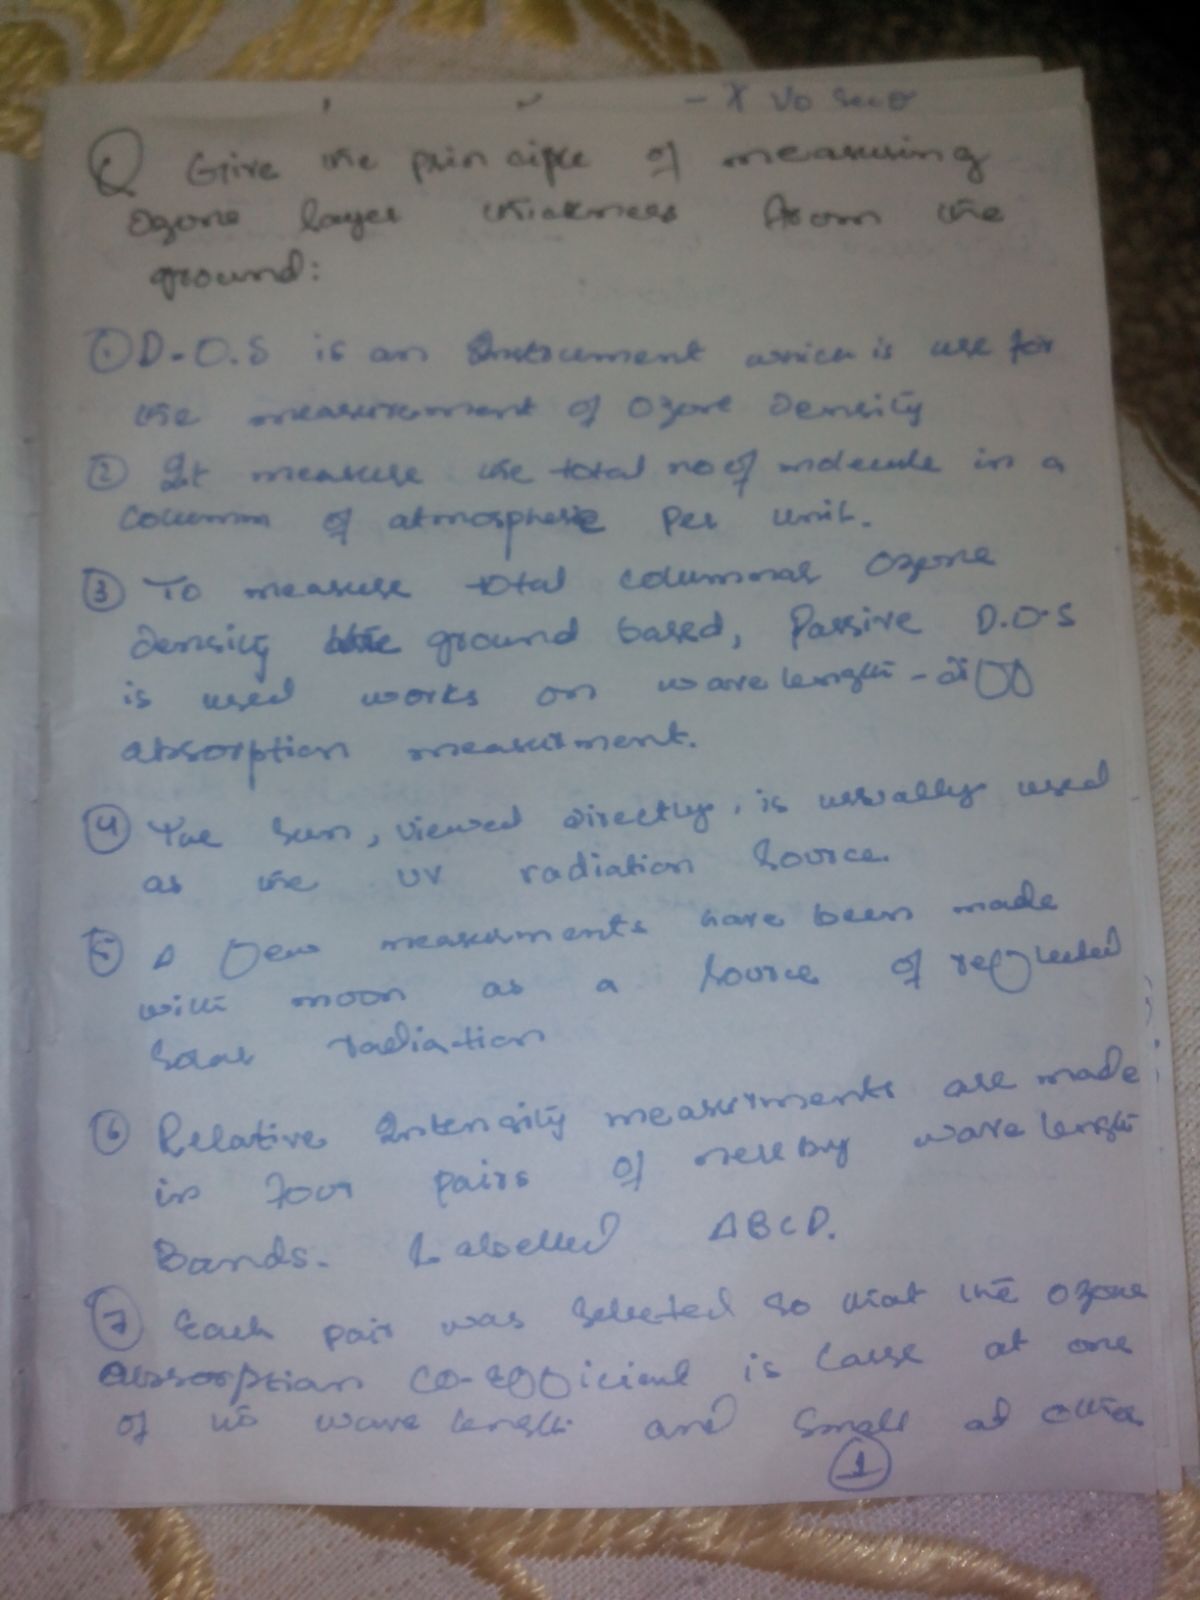 - X Vo Secθ
Q Give the principle of measuring
Ozone layer thickness from the
ground:
① D.O.S is an Instrument which is use for
the measurement of Ozone density
② It measure the total no of molecule in a
Column of atmosphere per unit.
③ To measure total columnar Ozone
density ground based, Passive D.O.S
is used works on wavelength - diff
absorption measurment.
④ The Sun, viewed directly, is usually used
as the UV radiation Source.
⑤ A few measurments have been made
with moon as a Source of reflected
Solar radiation
⑥ Relative Intensity measurments are made
in four pairs of nearby wavelength
Bands. Labelled ABCD.
⑦ Each pair was Selected So that the ozone
absorption co-efficient is Large at one
of its wavelength and Small at other
①